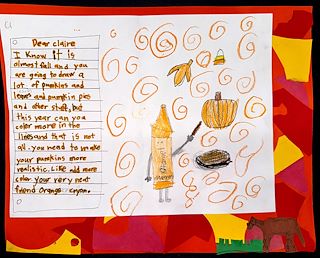 Dear claire
I know it is
almost fall and you
are going to draw a
lot of pumkins and
leaves and pumpin pies
and other stuff, but
this year can you
color more in the
lines and that is not
all. you need to make
your pumkins more
realistic. Like add more
color your very neat
friend Orange cryon.